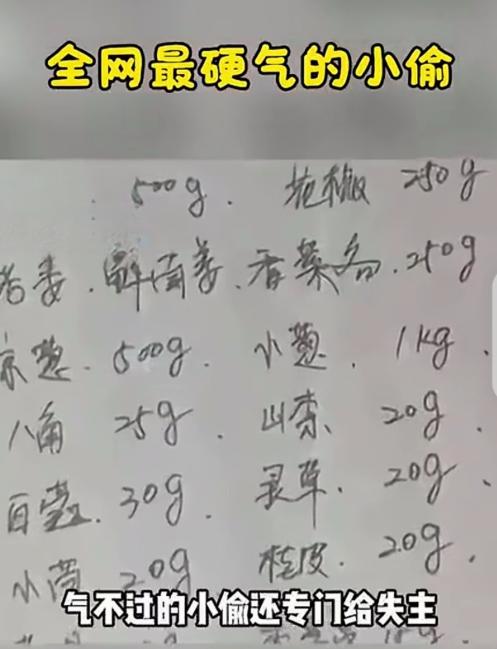 全网最硬气的小偷
500g. 花椒 250g
姜. 香菜各.250g
京葱. 500g. 小葱. 1kg.
八角 25g. 山柰 20g.
白蔻. 30g. 灵草. 20g.
小茴 20g 桂皮. 20g.
气不过的小偷还专门给失主